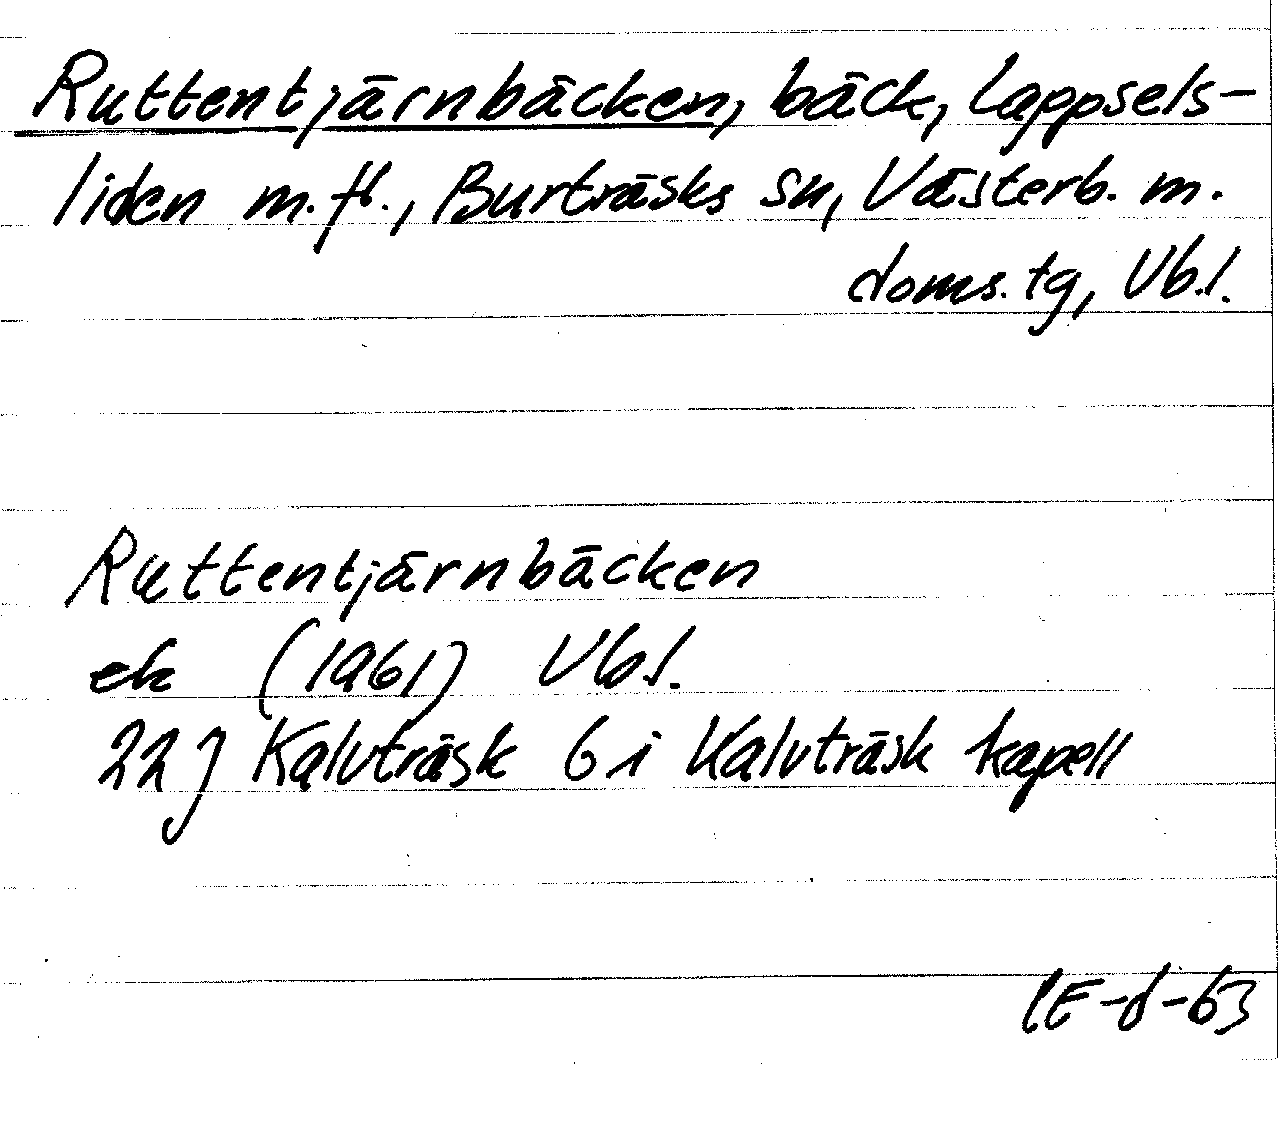 Ruttentjärnbäcken, bäck, Lappsels-
liden m.fl., Burträsks sn, Västerb. m.
doms. tg, Vb.l.
Ruttentjärnbäcken
ek (1961) Vb l.
22 J Kalvträsk 6 i Kalvträsk kapell